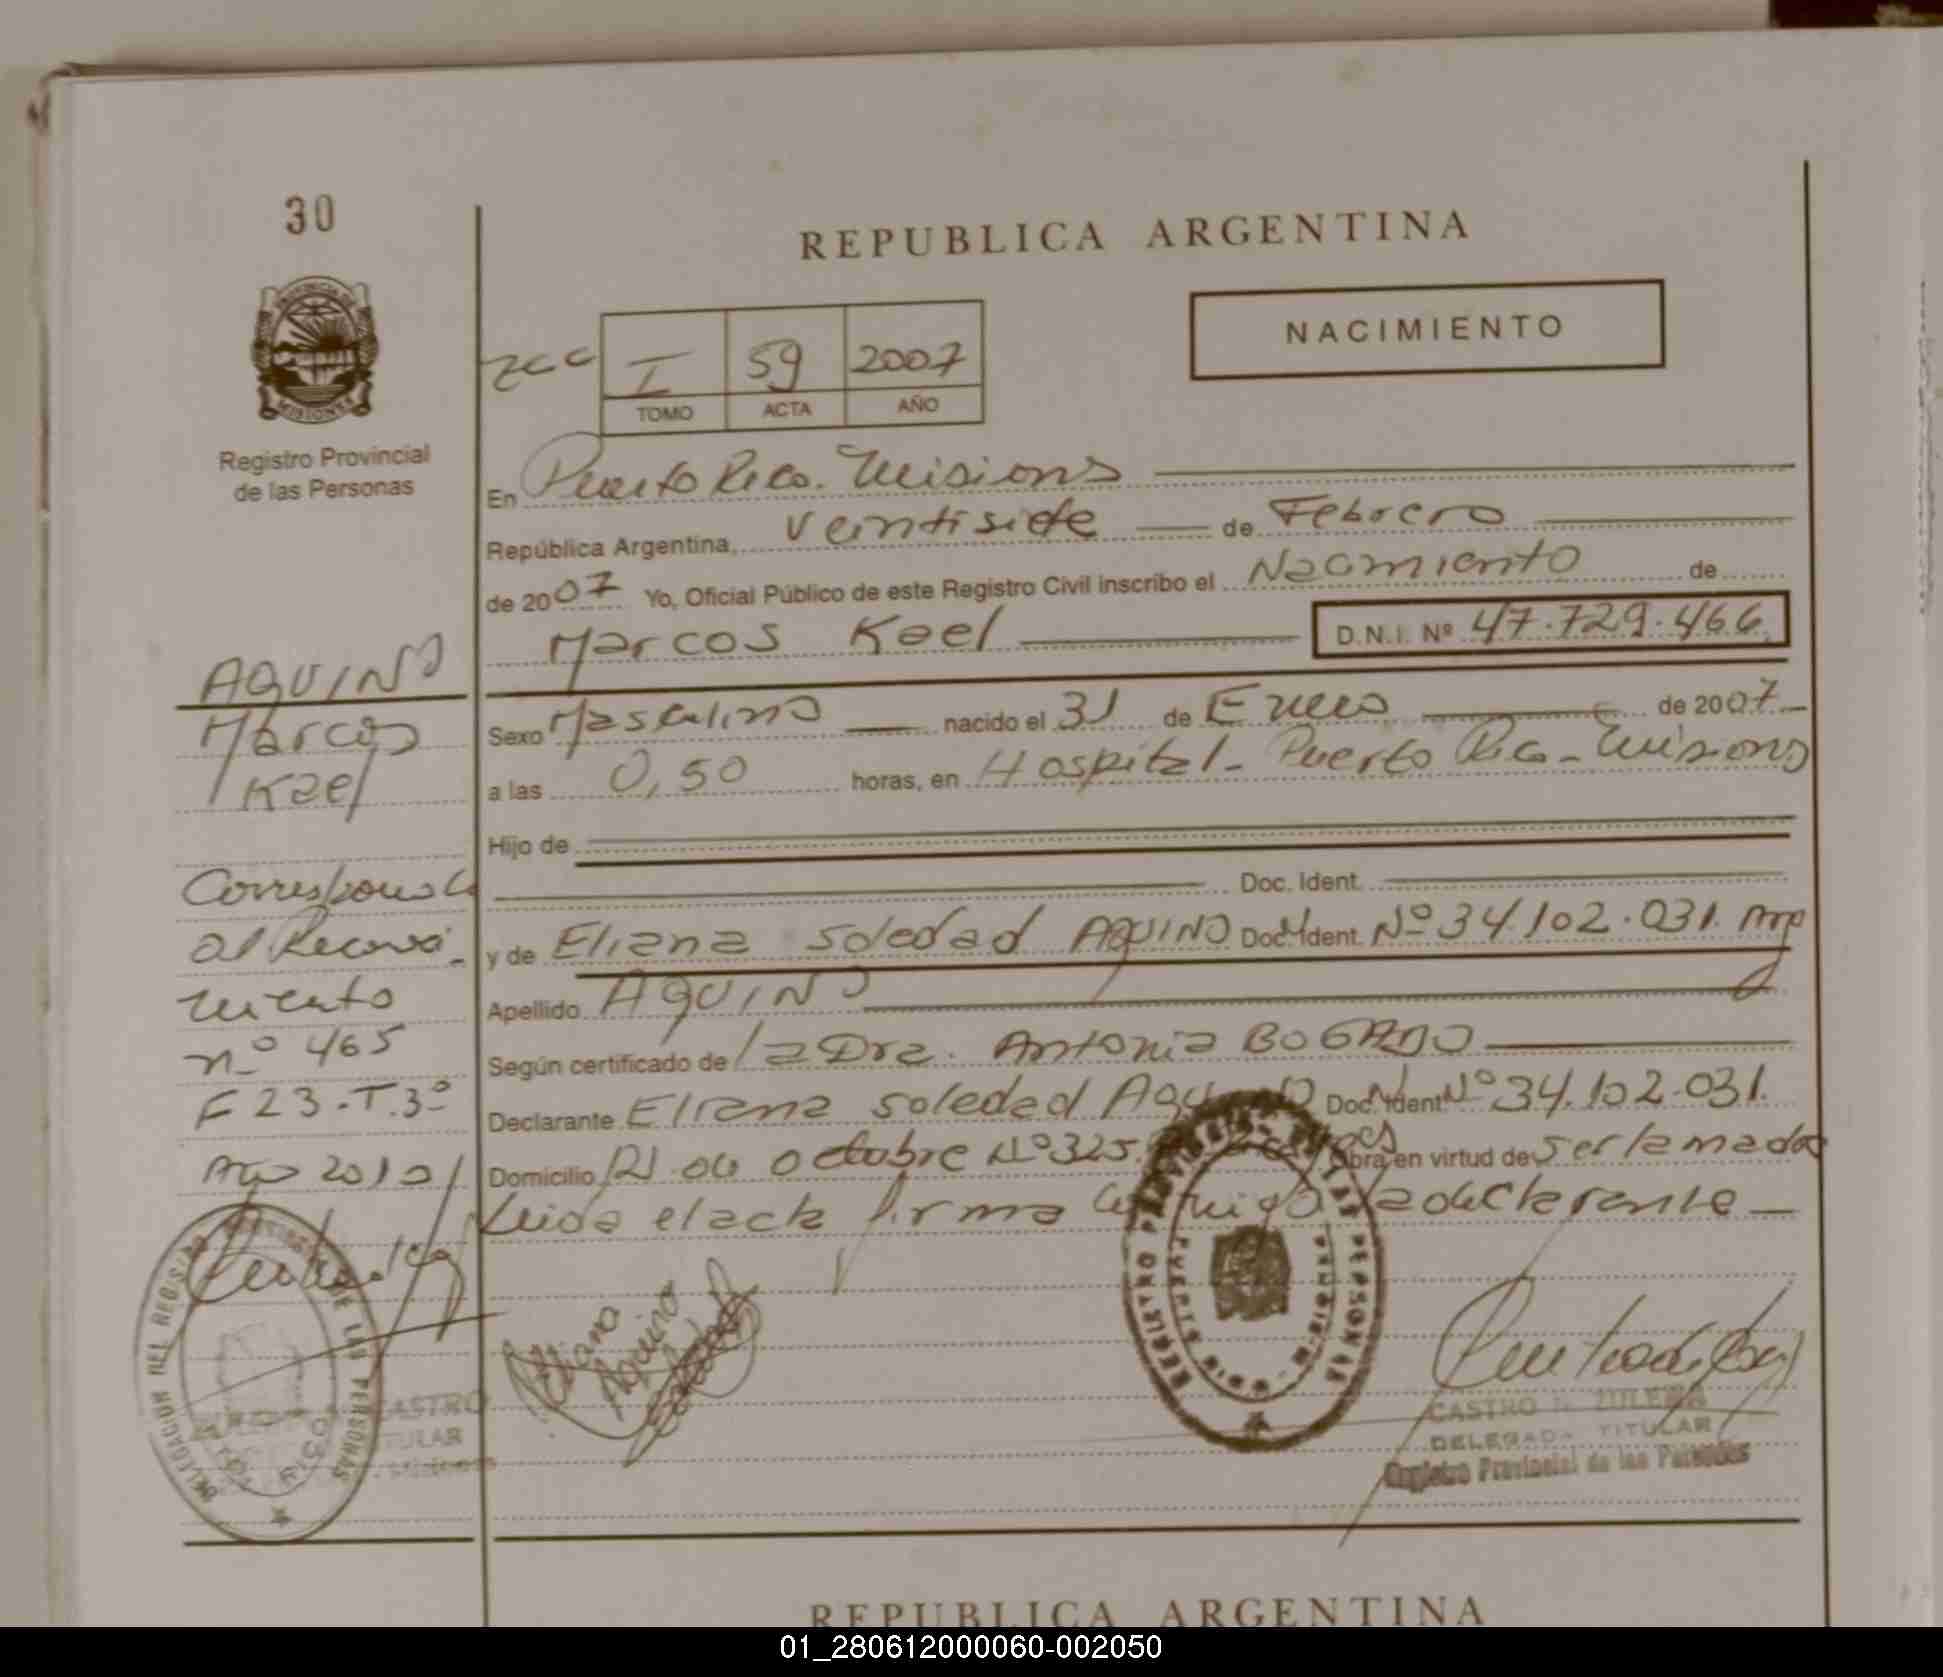 30
REPUBLICA ARGENTINA
NACIMIENTO
I 59 2007
TOMO ACTA AÑO
PROVINCIA DE MISIONES
Registro Provincial
de las Personas
En Puerto Rico. Misiones
República Argentina, veintisiete de Febrero
de 2007 Yo, Oficial Público de este Registro Civil inscribo el Nacimiento de
Marcos Kael D.N.I. Nº 47.729.466
Sexo Masculino nacido el 31 de Enero de 2007
a las 0,50 horas, en Hospital - Puerto Rico - Misiones
Hijo de
Doc. Ident.
y de Eliana Soledad AQUINO Doc. Ident. Nº 34.102.031. Arg
Apellido AQUINO
Según certificado de la Dra. Antonia BOGADO
Declarante Eliana Soledad Aquino Doc. Ident. Nº 34.102.031.
Domicilio 12 de octubre Nº 325. Obra en virtud de ser la madre
Leida el acta firma conmigo la declarante
AQUINO
Marcos
Kael
Corresponde
al Reconoci-
miento
nº 465
F 23. T. 3º
Año 2010
DELEGACION DEL REGISTRO DE LAS PERSONAS
CASTRO
TITULAR
Misiones
Eliana
Aquino
Soledad
REGISTRO PROVINCIAL DE LAS PERSONAS
CASTRO ZULEMA
DELEGADA TITULAR
Registro Provincial de las Personas
REPUBLICA ARGENTINA
01_280612000060-002050